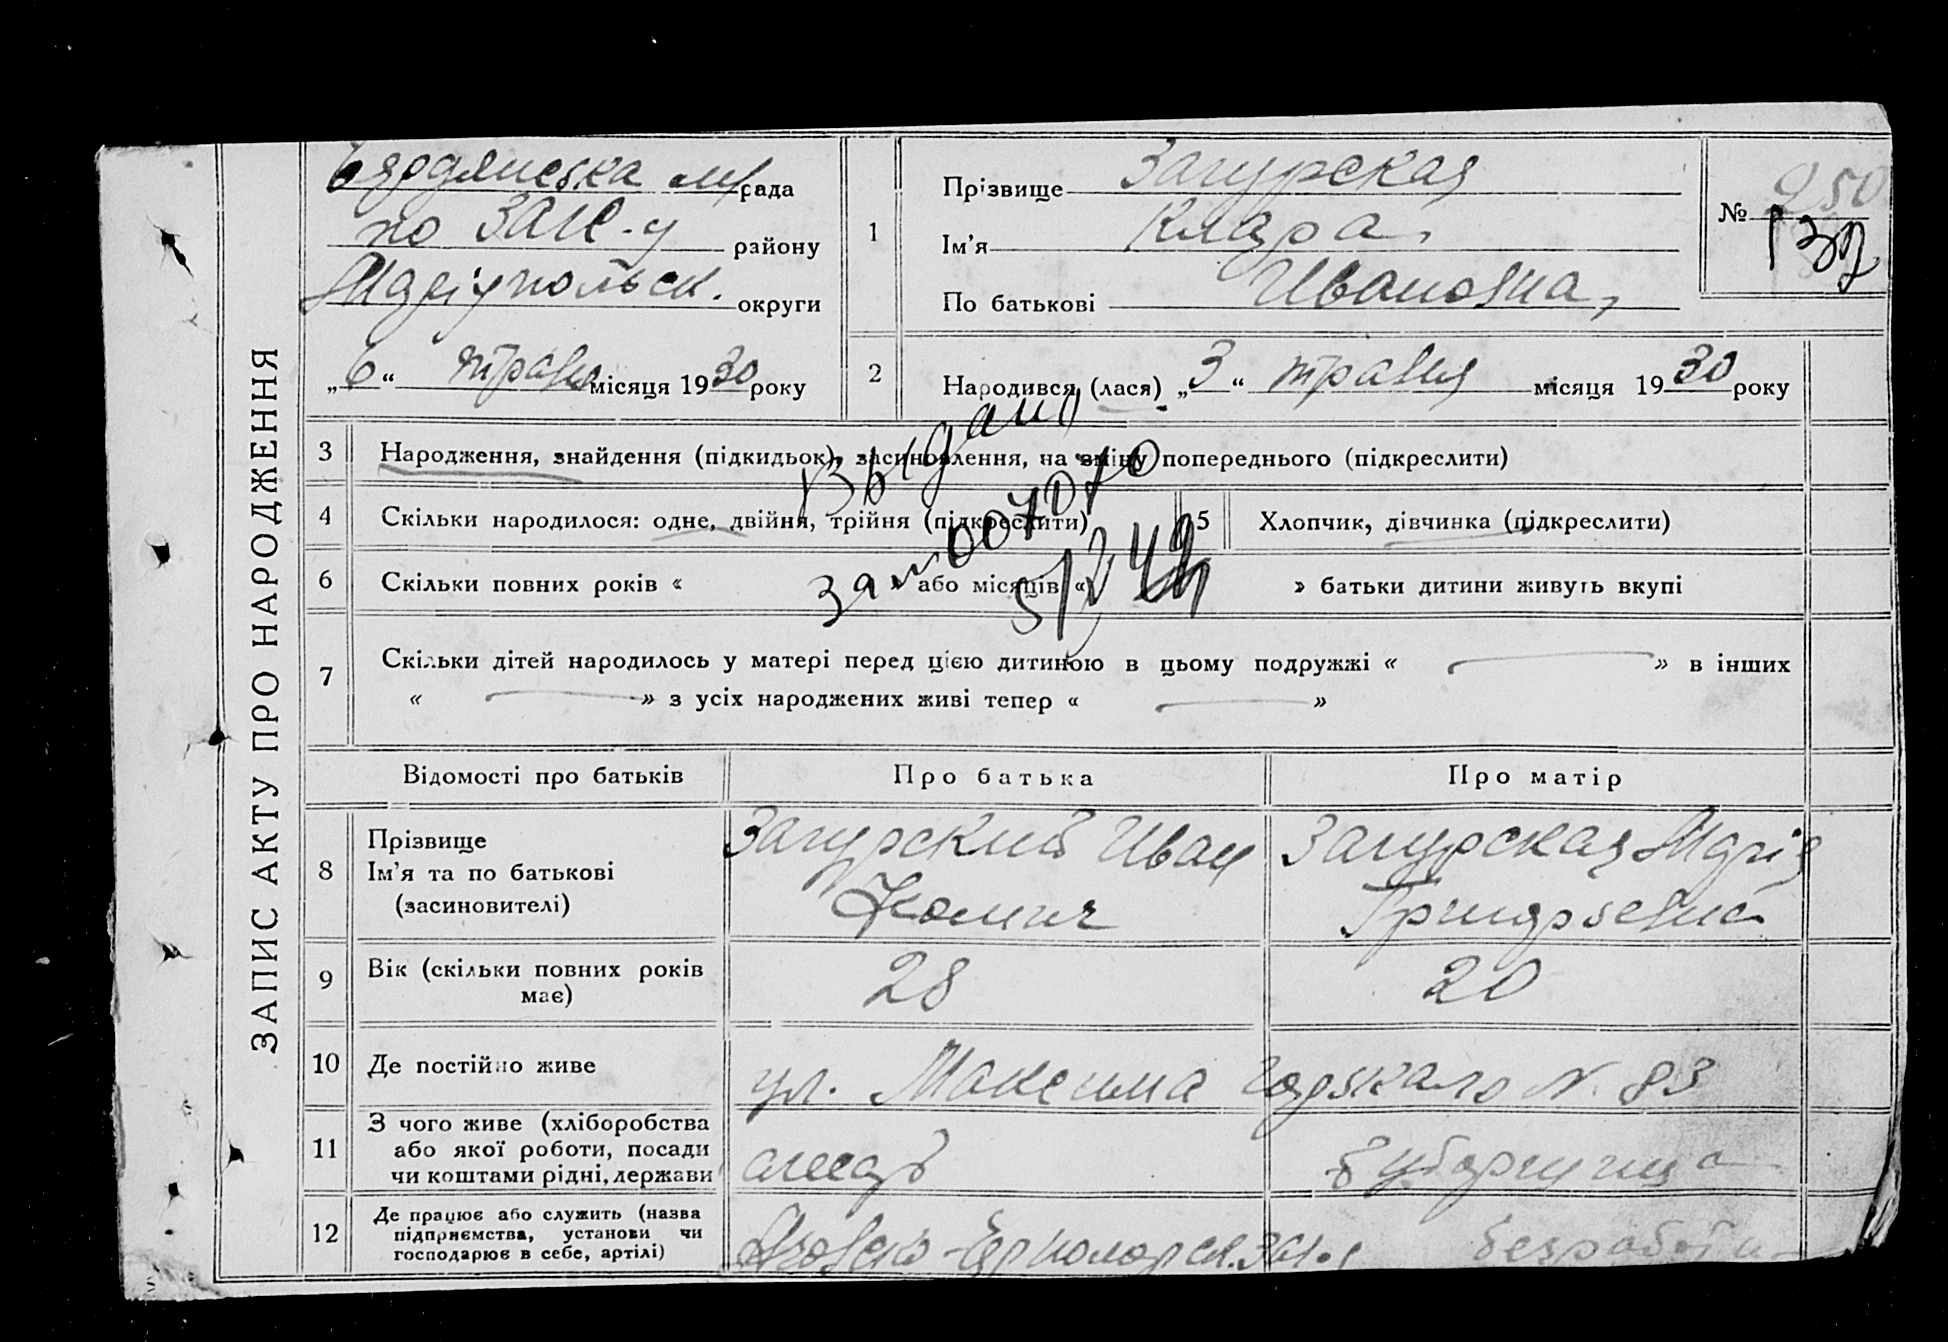 ЗАПИС АКТУ ПРО НАРОДЖЕННЯ
Бярдянська м/рада
по ЗАГС-у району
Маріупольськ. округи
„6“ травня місяця 1930 року
1
Прізвище Загурская
Ім'я Клара,
По батькові Ивановна,
№ 250
132
2
Народився (лася) „3“ травня місяця 1930 року
3 Народження, знайдення (підкидьок), засиновлення, на зміну попереднього (підкреслити)
4 Скільки народилося: одне, двійня, трійня (підкреслити)
5 Хлопчик, дівчинка (підкреслити)
Выдано
6 Скільки повних років « або місяців « » батьки дитини живуть вкупі
7 Скільки дітей народилось у матері перед цією дитиною в цьому подружжі « » в інших
« » з усіх народжених живі тепер « »
Відомості про батьків Про батька Про матір
8 Прізвище
Ім'я та по батькові
(засиновителі)
Загурский Иван
Загурская Марія
9 Вік (скільки повних років
має)
28 20
10 Де постійно живе ул. Максима Горькаго N. 83
11 З чого живе (хліборобства
або якої роботи, посади
чи коштами рідні, держави
12 Де працює або служить (назва
підприємства, установи чи
господарює в себе, артілі)